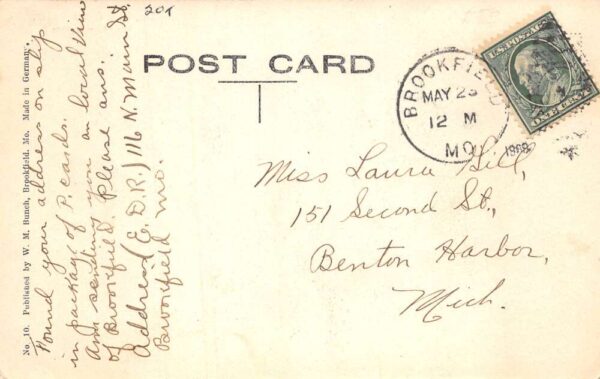 No. 10. Published by W. M. Bunch, Brookfield, Mo. Made in Germany.
Found your address on slip
in package of P. cards.
Am sending you an local View
of Brookfield. Please ans.
Address (E. D. R.) 116 N. Main St.
Brookfield Mo.
20x
POST CARD
BROOKFIELD
MAY 25
12 M
MO.
1909
U.S. POSTAGE
Miss Laura Hill,
151 Second St.,
Benton Harbor,
Mich.